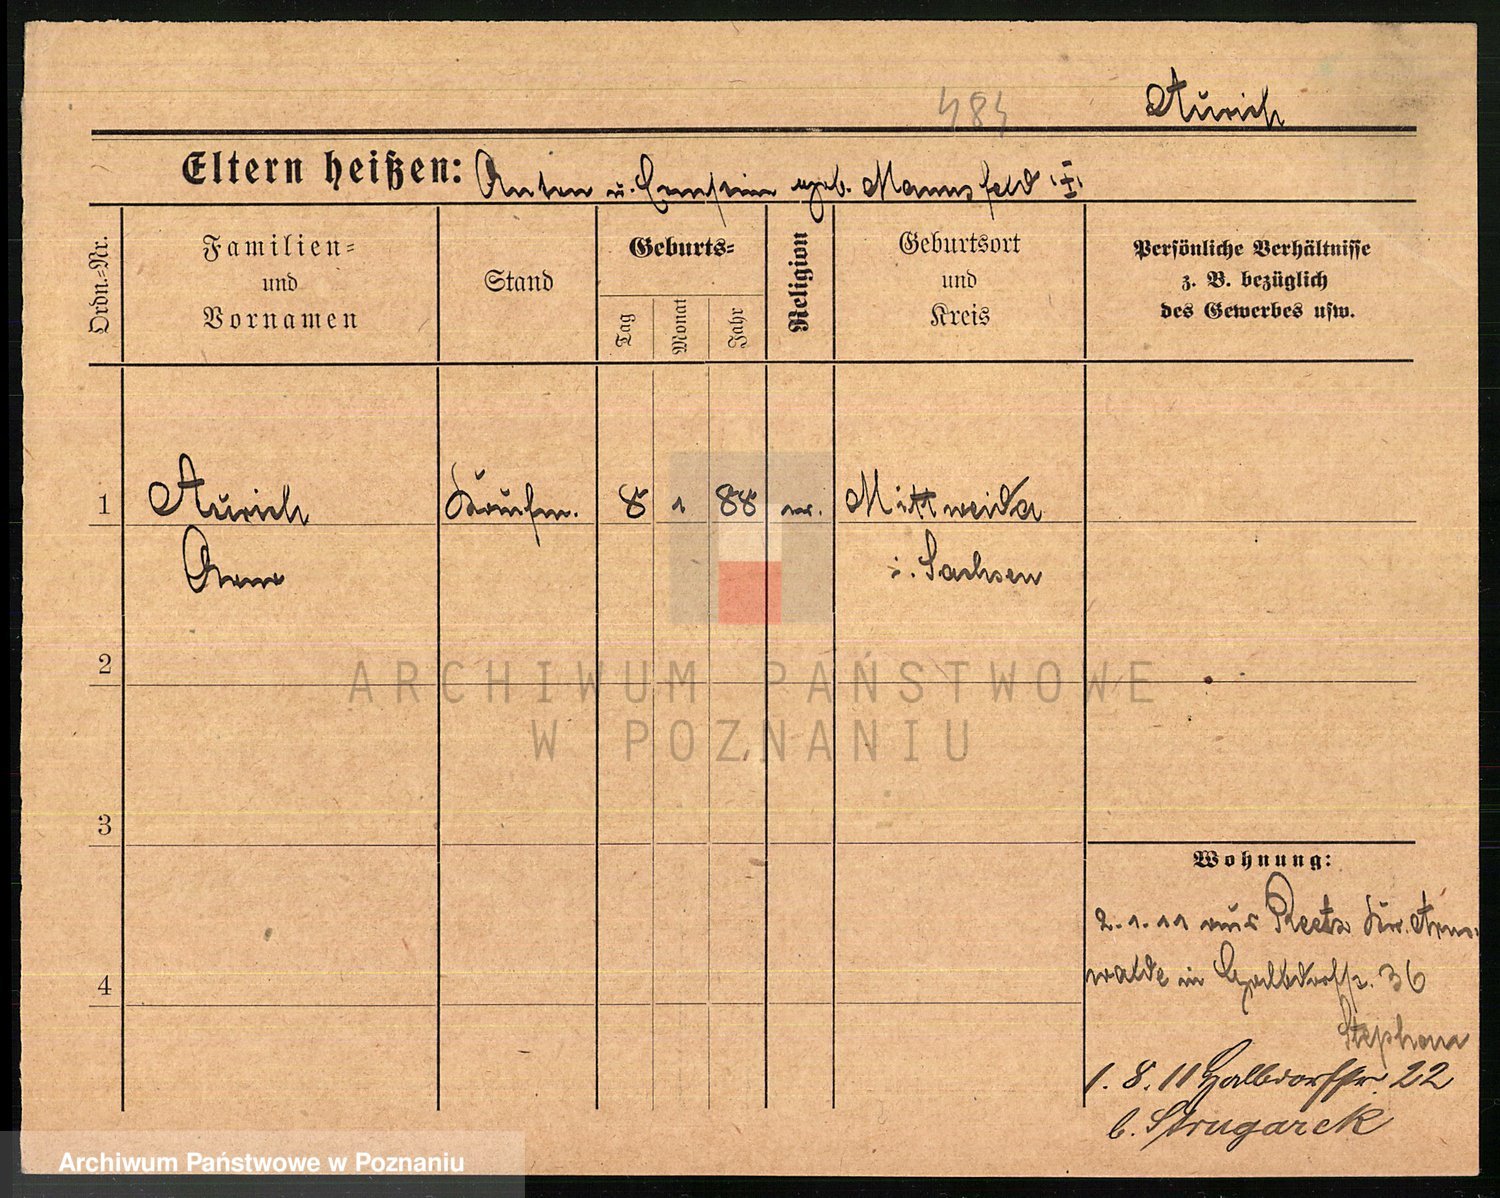 484
Aurich
Eltern heißen: Anton u. Ernstine geb. Mannsfeld
Ordn.-Nr.
Familien-
und
Vornamen
Stand
Geburts-
Tag
Monat
Jahr
Religion
Geburtsort
und
Kreis
Persönliche Verhältnisse
z. B. bezüglich
des Gewerbes usw.
1 Aurich Kaufm. 8 1 88 ev. Mittweida
i. Sachsen
2
3
4
ARCHIWUM PAŃSTWOWE
W POZNANIU
Wohnung:
2.1.11 aus Reetz Kr. Arns-
walde in Halbdorfstr. 36
Stephan
1.8.11 Halbdorfstr 22
b. Strugarek
Archiwum Państwowe w Poznaniu